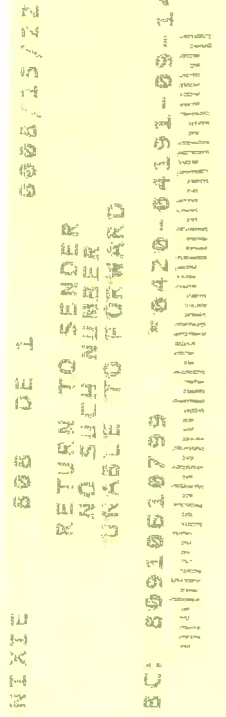 NIXIE 808 DE 1 0008/15/22
RETURN TO SENDER
NO SUCH NUMBER
UNABLE TO FORWARD
BC: 80910610799 *0420-04191-09-14